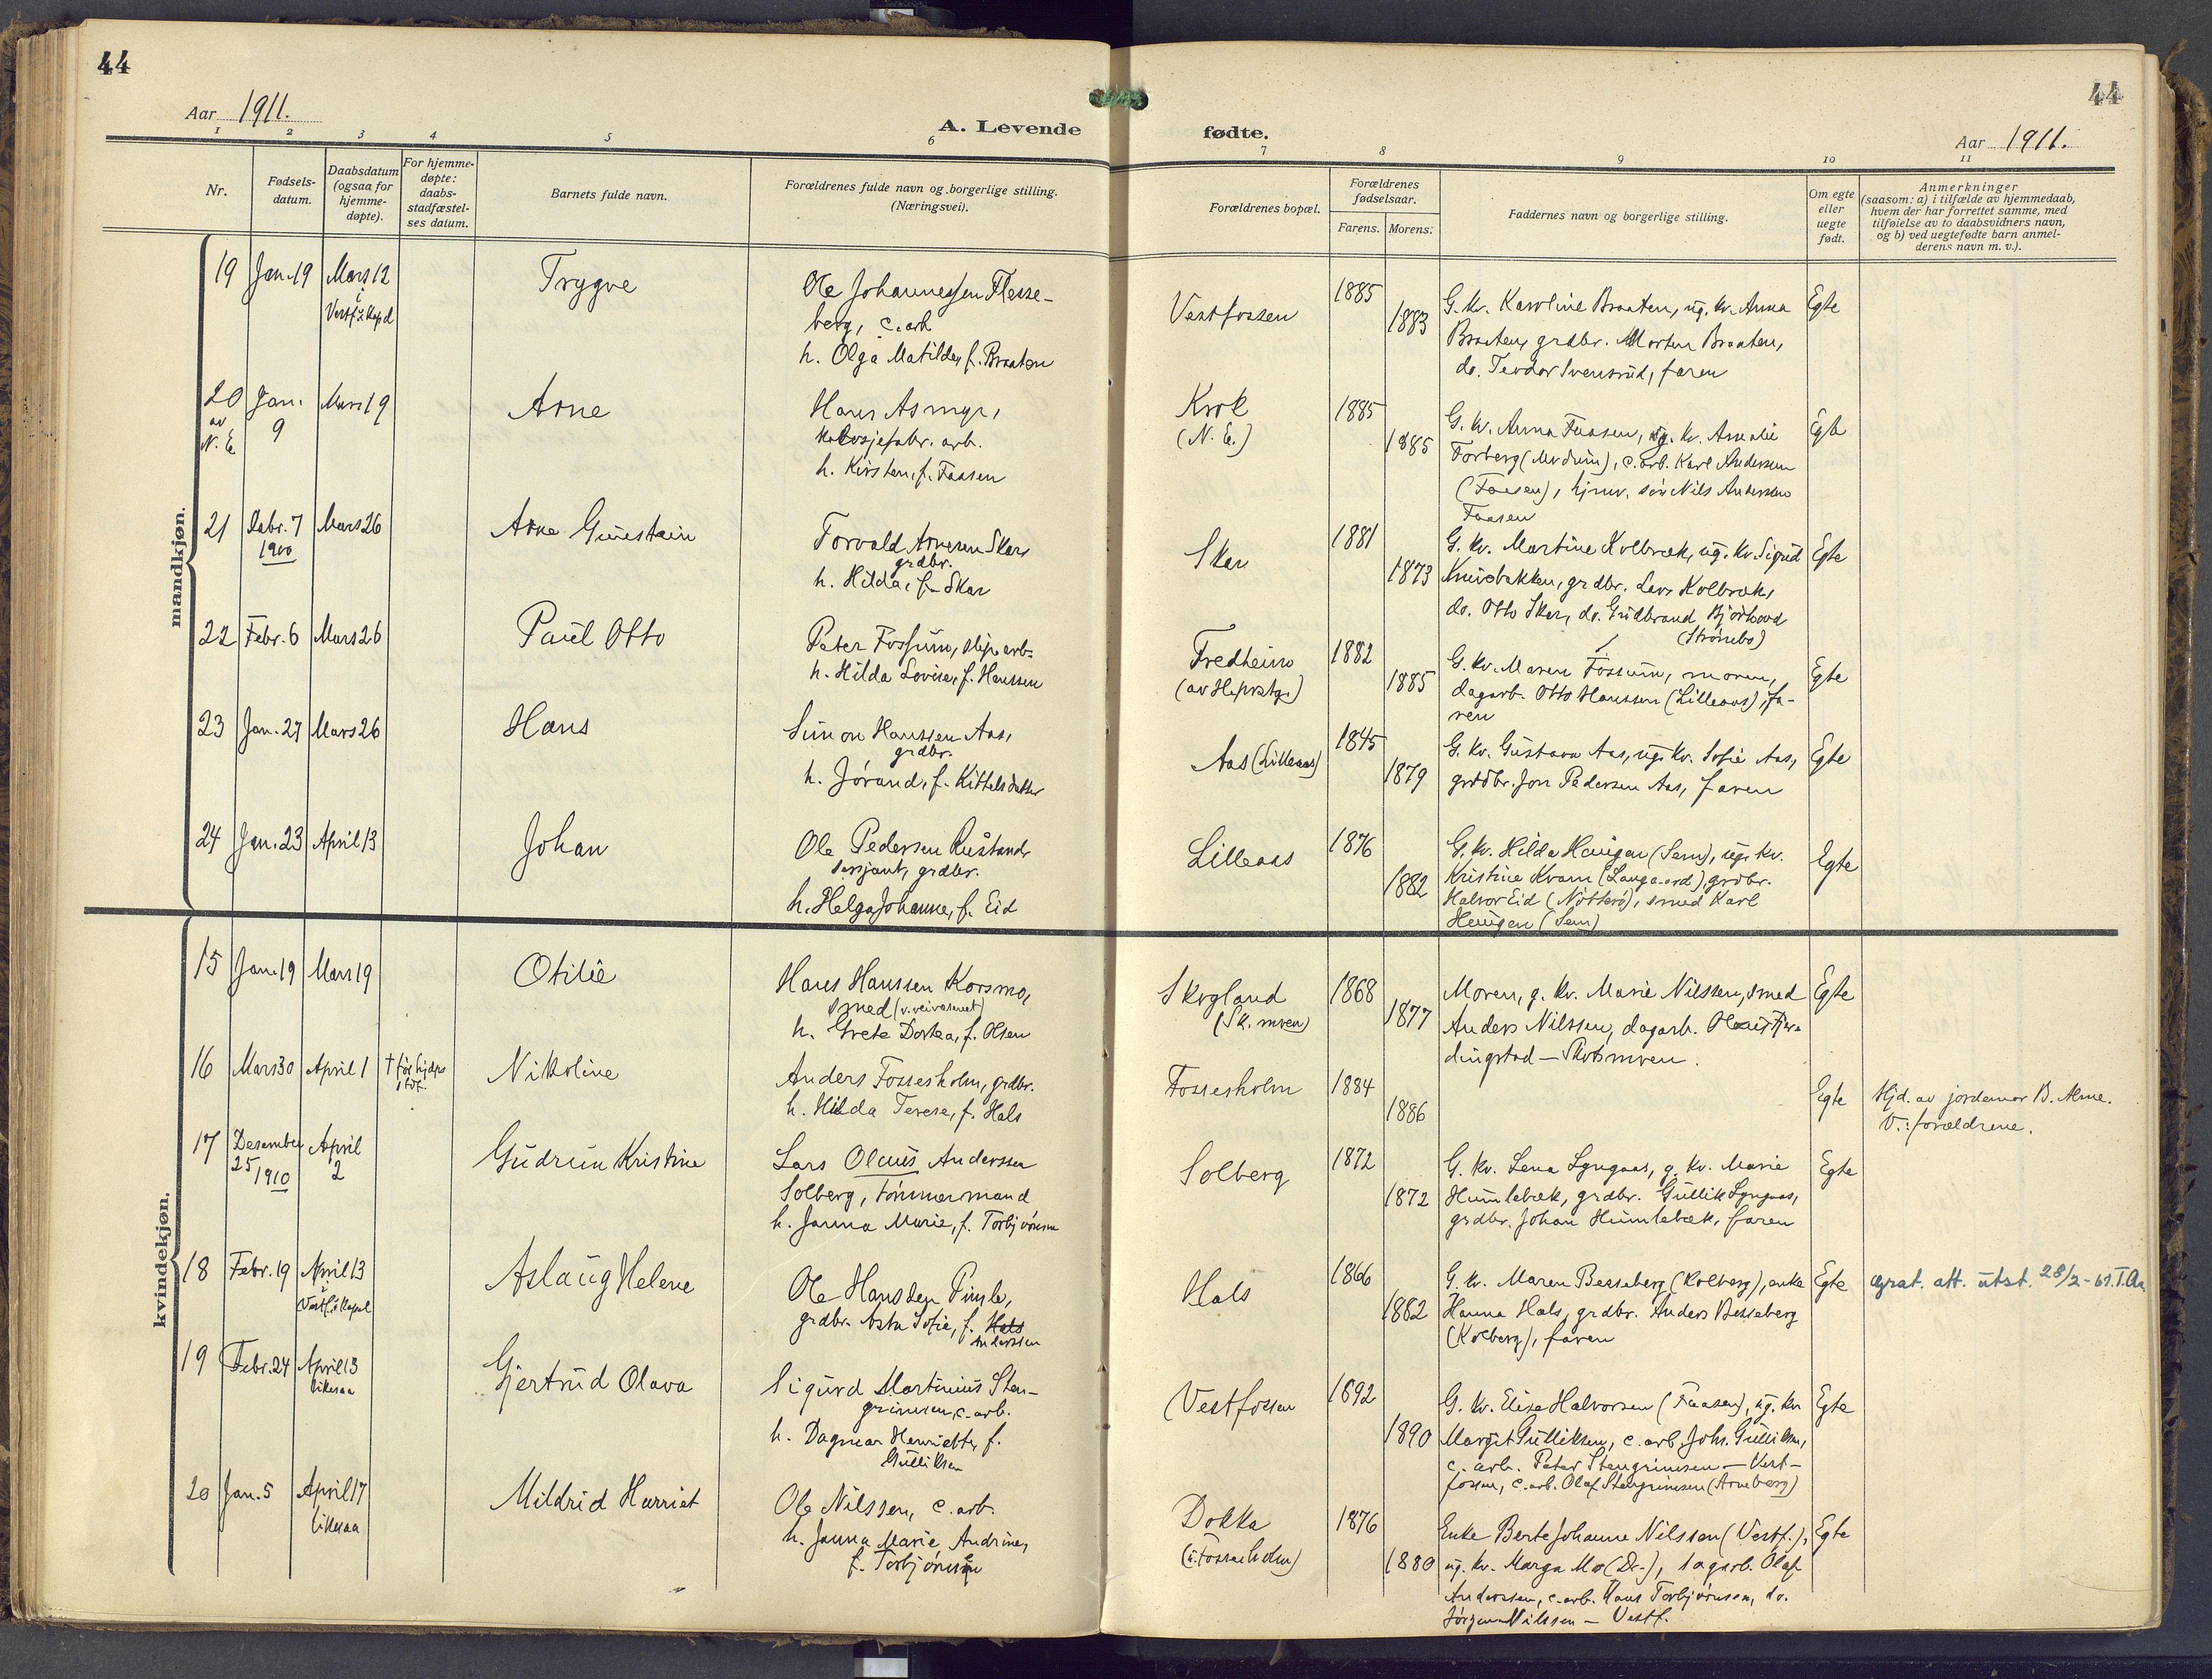 44
Aar 1911.
A. Levende
1 2 3 4 5 6
Nr.
Fødsels-
datum.
Daabsdatum
(ogsaa for
hjemme-
døpte).
For hjemme-
døpte:
daabs-
stadfæstel-
ses datum.
Barnets fulde navn.
Forældrenes fulde navn og borgerlige stilling.
(Næringsvei).
mandkjøn.
19 Jan. 19 Mars 12
i
Vestf.s Kapel
Trygve
Ole Johannessen Flesse-
berg, c. arb
h. Olga Matilde, f. Braaten
20
av
N. E.
Jan.
9
Mars 19
Arne
Hans Asmyr,
arb.
h. Kirsten, f. Faasen
21 Debr. 7
1910
Mars 26
Arne Gunstein
Torvald Arnesen Skar,
grdbr.
h. Hilda, f. Skar
22 Febr. 6 Mars 26
Paul Otto
Peter Fossum, slip.arb.
h. Hilda Lovise, f. Hanssen
23 Jan. 27 Mars 26
Hans
Simon Hanssen Aas,
grdbr.
h. Jørand, f. Kittelsdatter
24 Jan. 23 April 13
Johan
Ole Pedersen Rustand,
sersjant, grdbr.
h. Helga Johanne, f. Eid
kvindekjøn.
15 Jan. 19 Mars 19
Otilie
Hans Hanssen Korsmo,
smed
h. Grete Dortea, f. Olsen
16 Mars 30 April 1
† før hjdps
stdf.
Nikoline
Anders Fossesholm, grdbr.
h. Hilda Terese, f. Hals
17 Desember
25 1910
April
2
Gudrun Kristine
Lars Olaus Anderssen
Solberg, tømmermand
h. Janna Marie, f. Torbjørnsen
18 Febr. 19 April 13
i
Vestf.s Kapel
Aslaug Helene
Ole Hanssen
grdbr. Asta Sofie, f. Hals
Anderssen
19 Febr. 24 April 13
likesaa
Gjertrud Olava
Sigurd Martinius Sten-
grimsen, c. arb.
h. Dagmar Henriette, f.
Gulliksen
20 Jan. 5 April 17
likesaa
Mildrid Harriet
Ole Nilssen, c. arb.
h. Janna Marie Andrine,
f. Torbjørnsen
44
fødte.
Aar 1911.
7 8 9 10 11
Forældrenes bopæl.
Forældrenes
fødselsaar.
Farens. Morens.
Faddernes navn og borgerlige stilling.
Om egte
eller
uegte
født.
Anmerkninger
(saasom: a) i tilfælde av hjemmedaab,
hvem der har forrettet samme, med
tilføielse av to daabsvidners navn,
og b) ved uegtefødte barn anmel-
derens navn m. v.).
Vestfossen 1885 1883
G. kv. Karoline Braaten, ug. kv. Anna
Braaten, grdbr. Morten Braaten,
do. Teodor Svensrud, faren
Egte
Krok
(N. E.)
1885 1885
G. kv. Anna Faasen, ug. kv. Amalie
Forberg (Modum), c. arb. Karl Andersen
(Faasen), hjmv. søn Nils Andersen
Faasen
Egte
Skar 1881 1873
G. kv. Martine Kolbræk, ug. kv. Sigrid
grdbr. Lars Kolbræk,
do. Otto Skar, do. Gudbrand
(Strømbo)
Egte
Fredheim 1882 1885
G. kv. Maren Fossum, moren,
dagarb. Otto Hanssen (Lilleaas), fa-
ren
Egte
Aas (Lilleaas) 1845 1879
G. kv. Gustava Aas, ug. kv. Sofie Aas,
grdbr. Jon Pedersen Aas, faren
Egte
Lilleaas 1876 1882
G. kv. Hilda Haugen (Sem), ug. kv.
Kristine Kvam (Langaard), grdbr.
Halvor Eid (Nøtterø), smed Karl
Haugen (Sem)
Egte
Skogland
(Sk. moen)
1868 1877
Moren, g. kv. Marie Nilssen, smed
Anders Nilssen, dagarb. Olaus Fjer-
dingstad — Skotsmoen.
Egte
Fossesholm 1884 1886
Egte
Hjd. av jordemor B. Alme.
V.: forældrene.
Solberg 1872 1872
G. kv. Lena Lyngaas, g. kv. Marie
Humlebæk, grdbr. Gullik Lyngaas,
grdbr. Johan Humlebæk, faren
Egte
Hals 1866 1882
G. kv. Maren Besseberg (Kolberg), enke
Hanna Hals, grdbr. Anders Besseberg
(Kolberg), faren
Egte
grat. att. utst. 28/2 - 61. T. Aa.
Vestfossen 1892 1890
G. kv. Elise Halvorsen (Faasen), ug. kv.
Margit Gulliksen, c. arb. Johs. Gulliksen,
c. arb. Peter Stengrimsen — Vest-
fossen, c. arb. Olaf Stengrimsen (Arneberg)
Egte
Dokka
(u. Fossesholm)
1876 1880
Enke Berte Johanne Nilssen (Vestf.),
ug. kv. Marga Mo (Dr.), dagarb. Olaf
Anderssen, c. arb. Hans Torbjørnsen, do.
Jørgen Nilssen — Vestf.
Egte